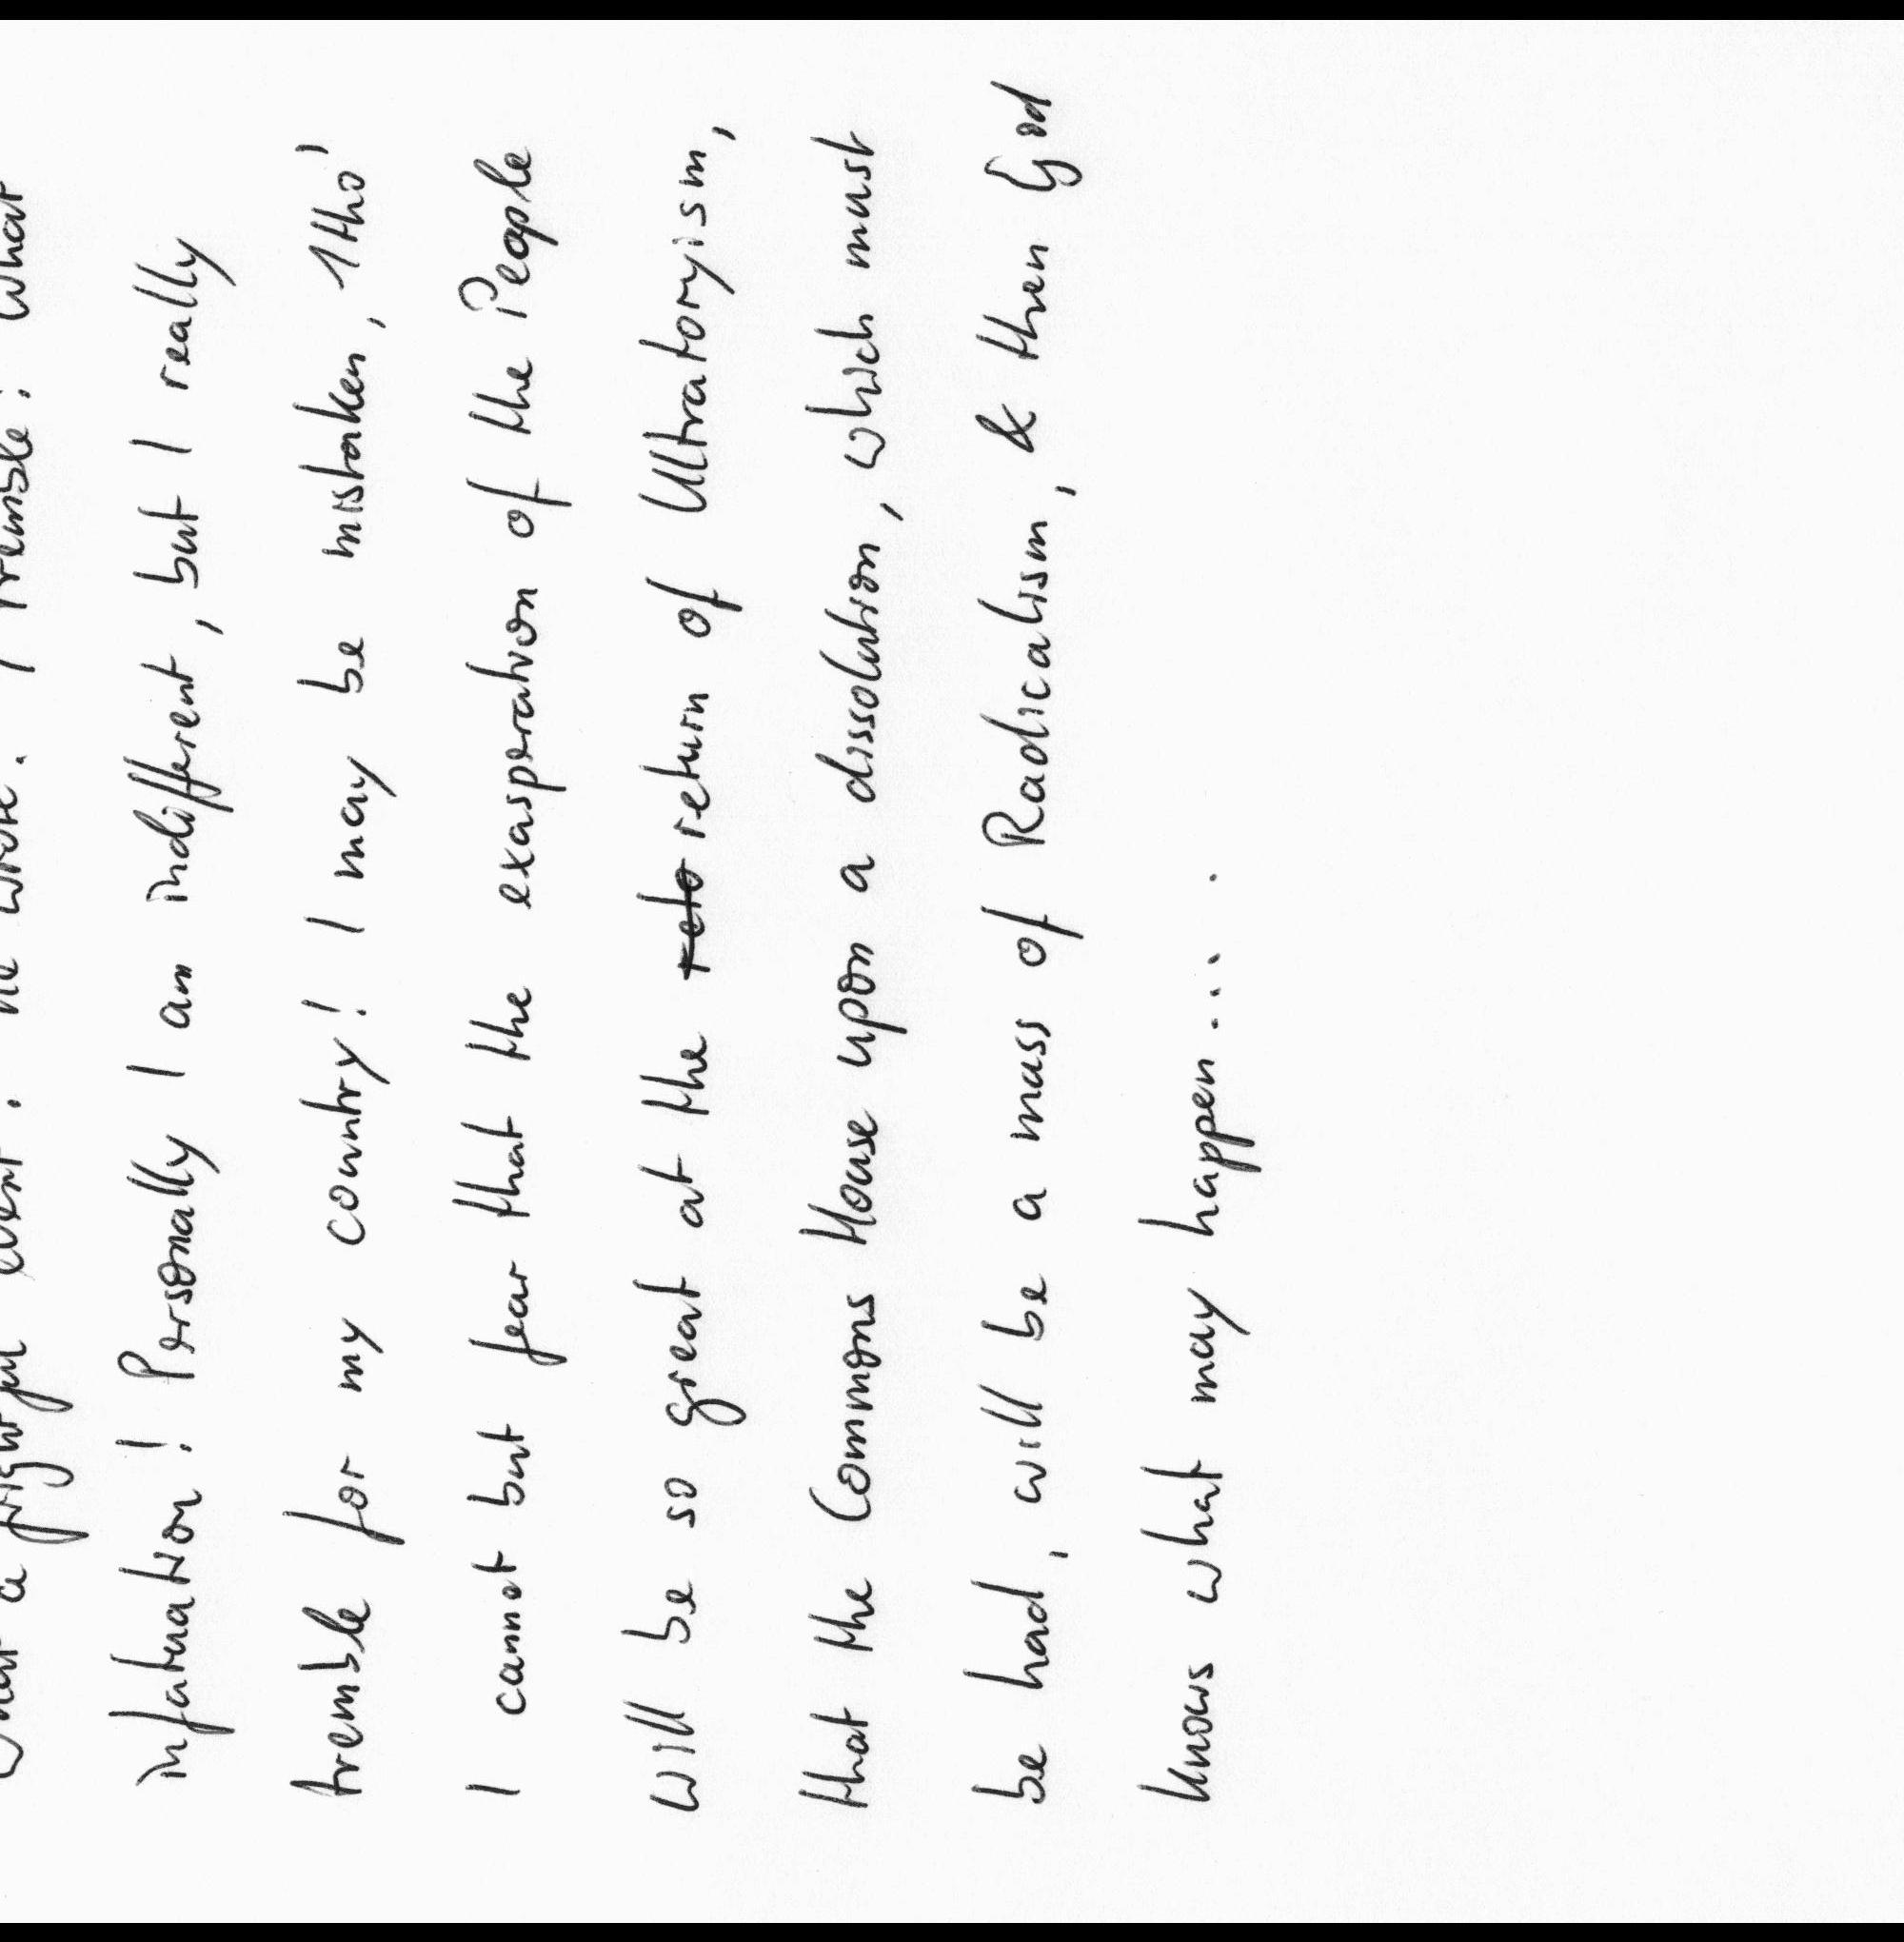 What a frightful event! he wrote. I tremble! What
infatuation! Personally I am indifferent, but I really
tremble for my country! I may be mistaken, 1tho'
I cannot but fear that the exasperation of the People
will be so great at the return of Ultratoryism,
that the Commons House upon a dissolution, which must
be had, will be a mass of Radicalism, & then God
knows what may happen....